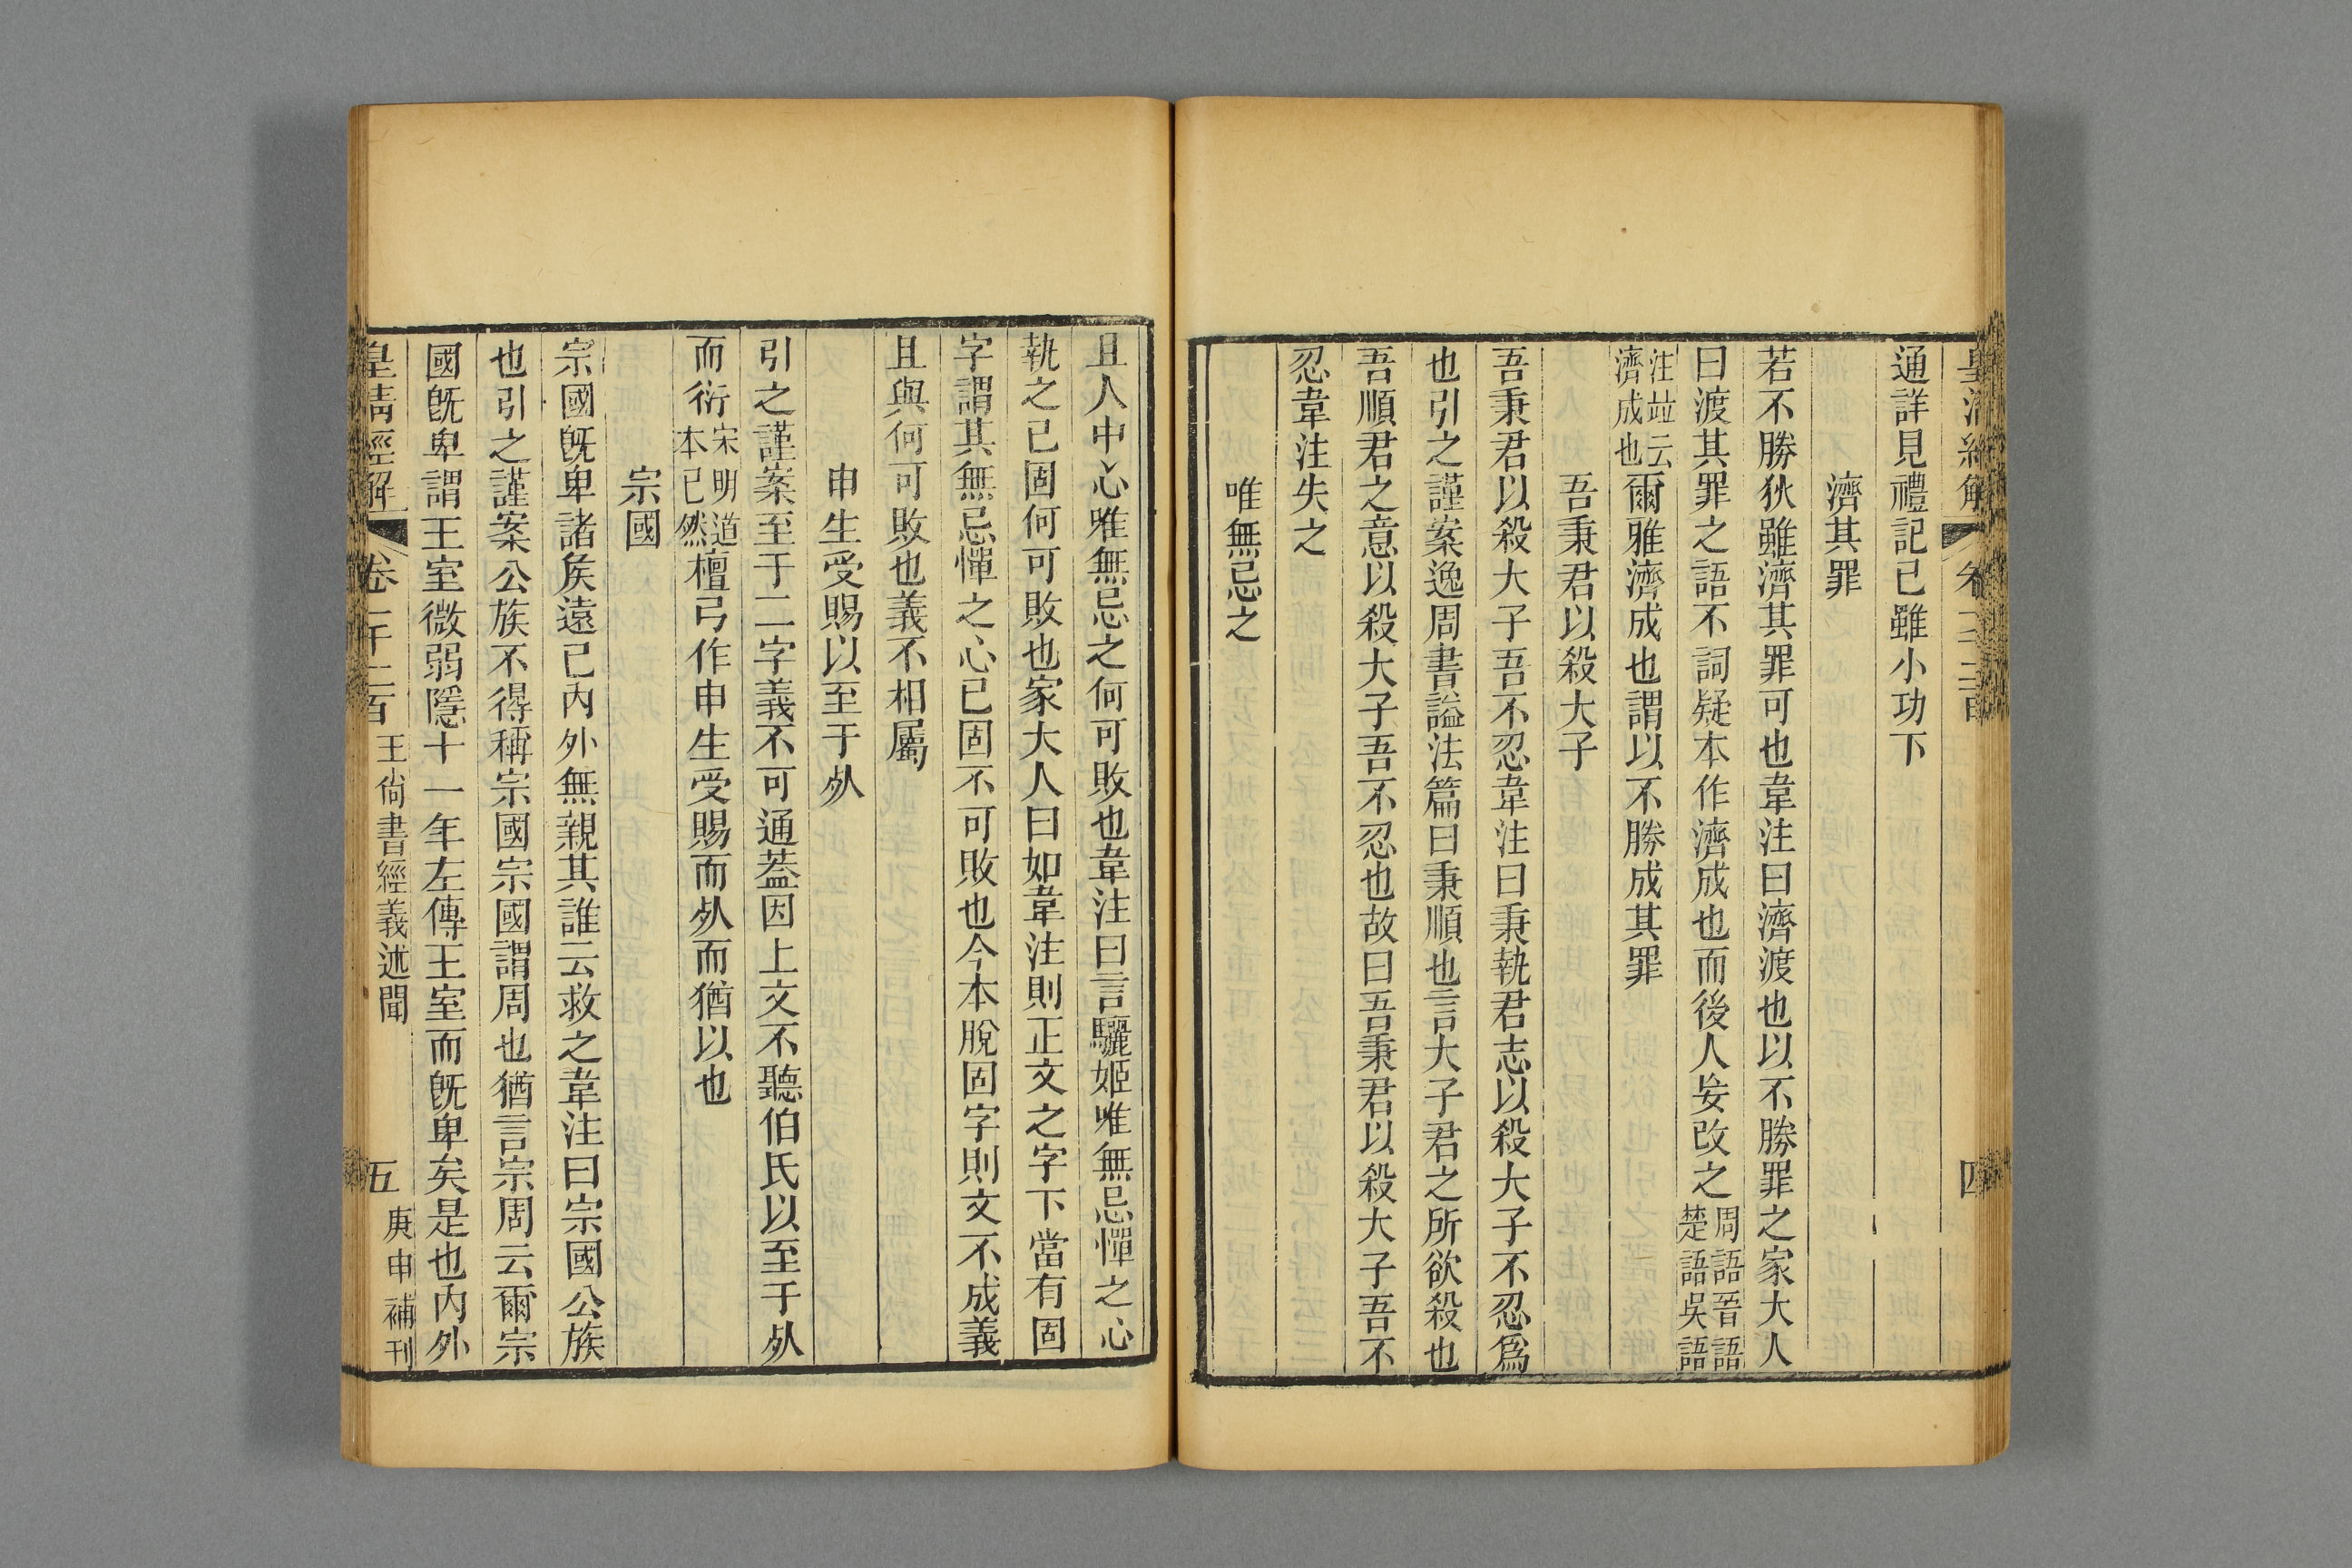 皇清經解
卷千二百
四
通詳見禮記已雖小功下
濟其罪
若不勝狄雖濟其罪可也韋注曰濟渡也以不勝罪之家大人
曰渡其罪之語不詞疑本作濟成也而後人妄改之周語晉語
楚語吳語
注竝云
濟成也爾雅濟成也謂以不勝成其罪
吾秉君以殺大子
吾秉君以殺大子吾不忍韋注曰秉執君志以殺大子不忍爲
也引之謹案逸周書謚法篇曰秉順也言大子君之所欲殺也
吾順君之意以殺大子吾不忍也故曰吾秉君以殺大子吾不
忍韋注失之
唯無忌之
且人中心唯無忌之何可敗也韋注曰言驪姬唯無忌憚之心
執之已固何可敗也家大人曰如韋注則正文之字下當有固
字謂其無忌憚之心已固不可敗也今本脫固字則文不成義
且與何可敗也義不相屬
申生受賜以至于𣦸
引之謹案至于二字義不可通葢因上文不聽伯氏以至于𣦸
而衍宋明道
本已然檀弓作申生受賜而𣦸而猶以也
宗國
宗國旣卑諸矦遠己內外無親其誰云救之韋注曰宗國公族
也引之謹案公族不得稱宗國宗國謂周也猶言宗周云爾宗
國旣卑謂王室微弱隱十一年左傳王室而旣卑矣是也內外
皇清經解
卷一千二百
王尙書經義述聞
五
庚申補刊